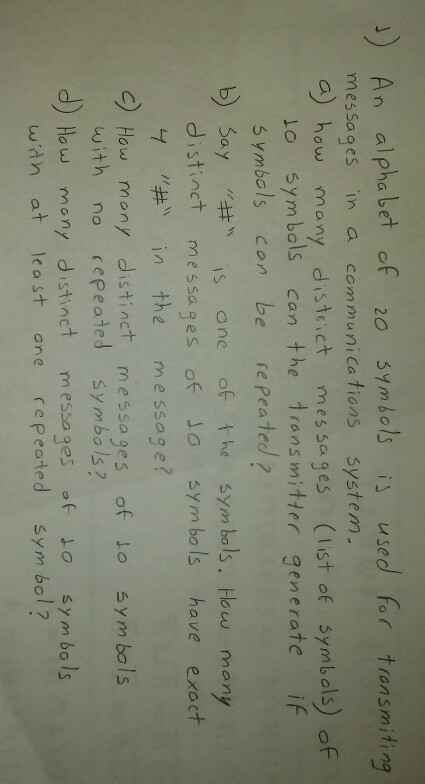 1) An alphabet of 20 symbols is used for transmiting
messages in a communications system.
a) how many district messages (list of symbols) of
10 symbols can the transmitter generate if
symbols can be repeated?
b) Say "#" is one of the symbols. How many
distinct messages of 10 symbols have exact
4 "#" in the message?
c) How many distinct messages of 10 symbols
with no repeated symbols?
d) How many distinct messages of 10 symbols
with at least one repeated symbol?